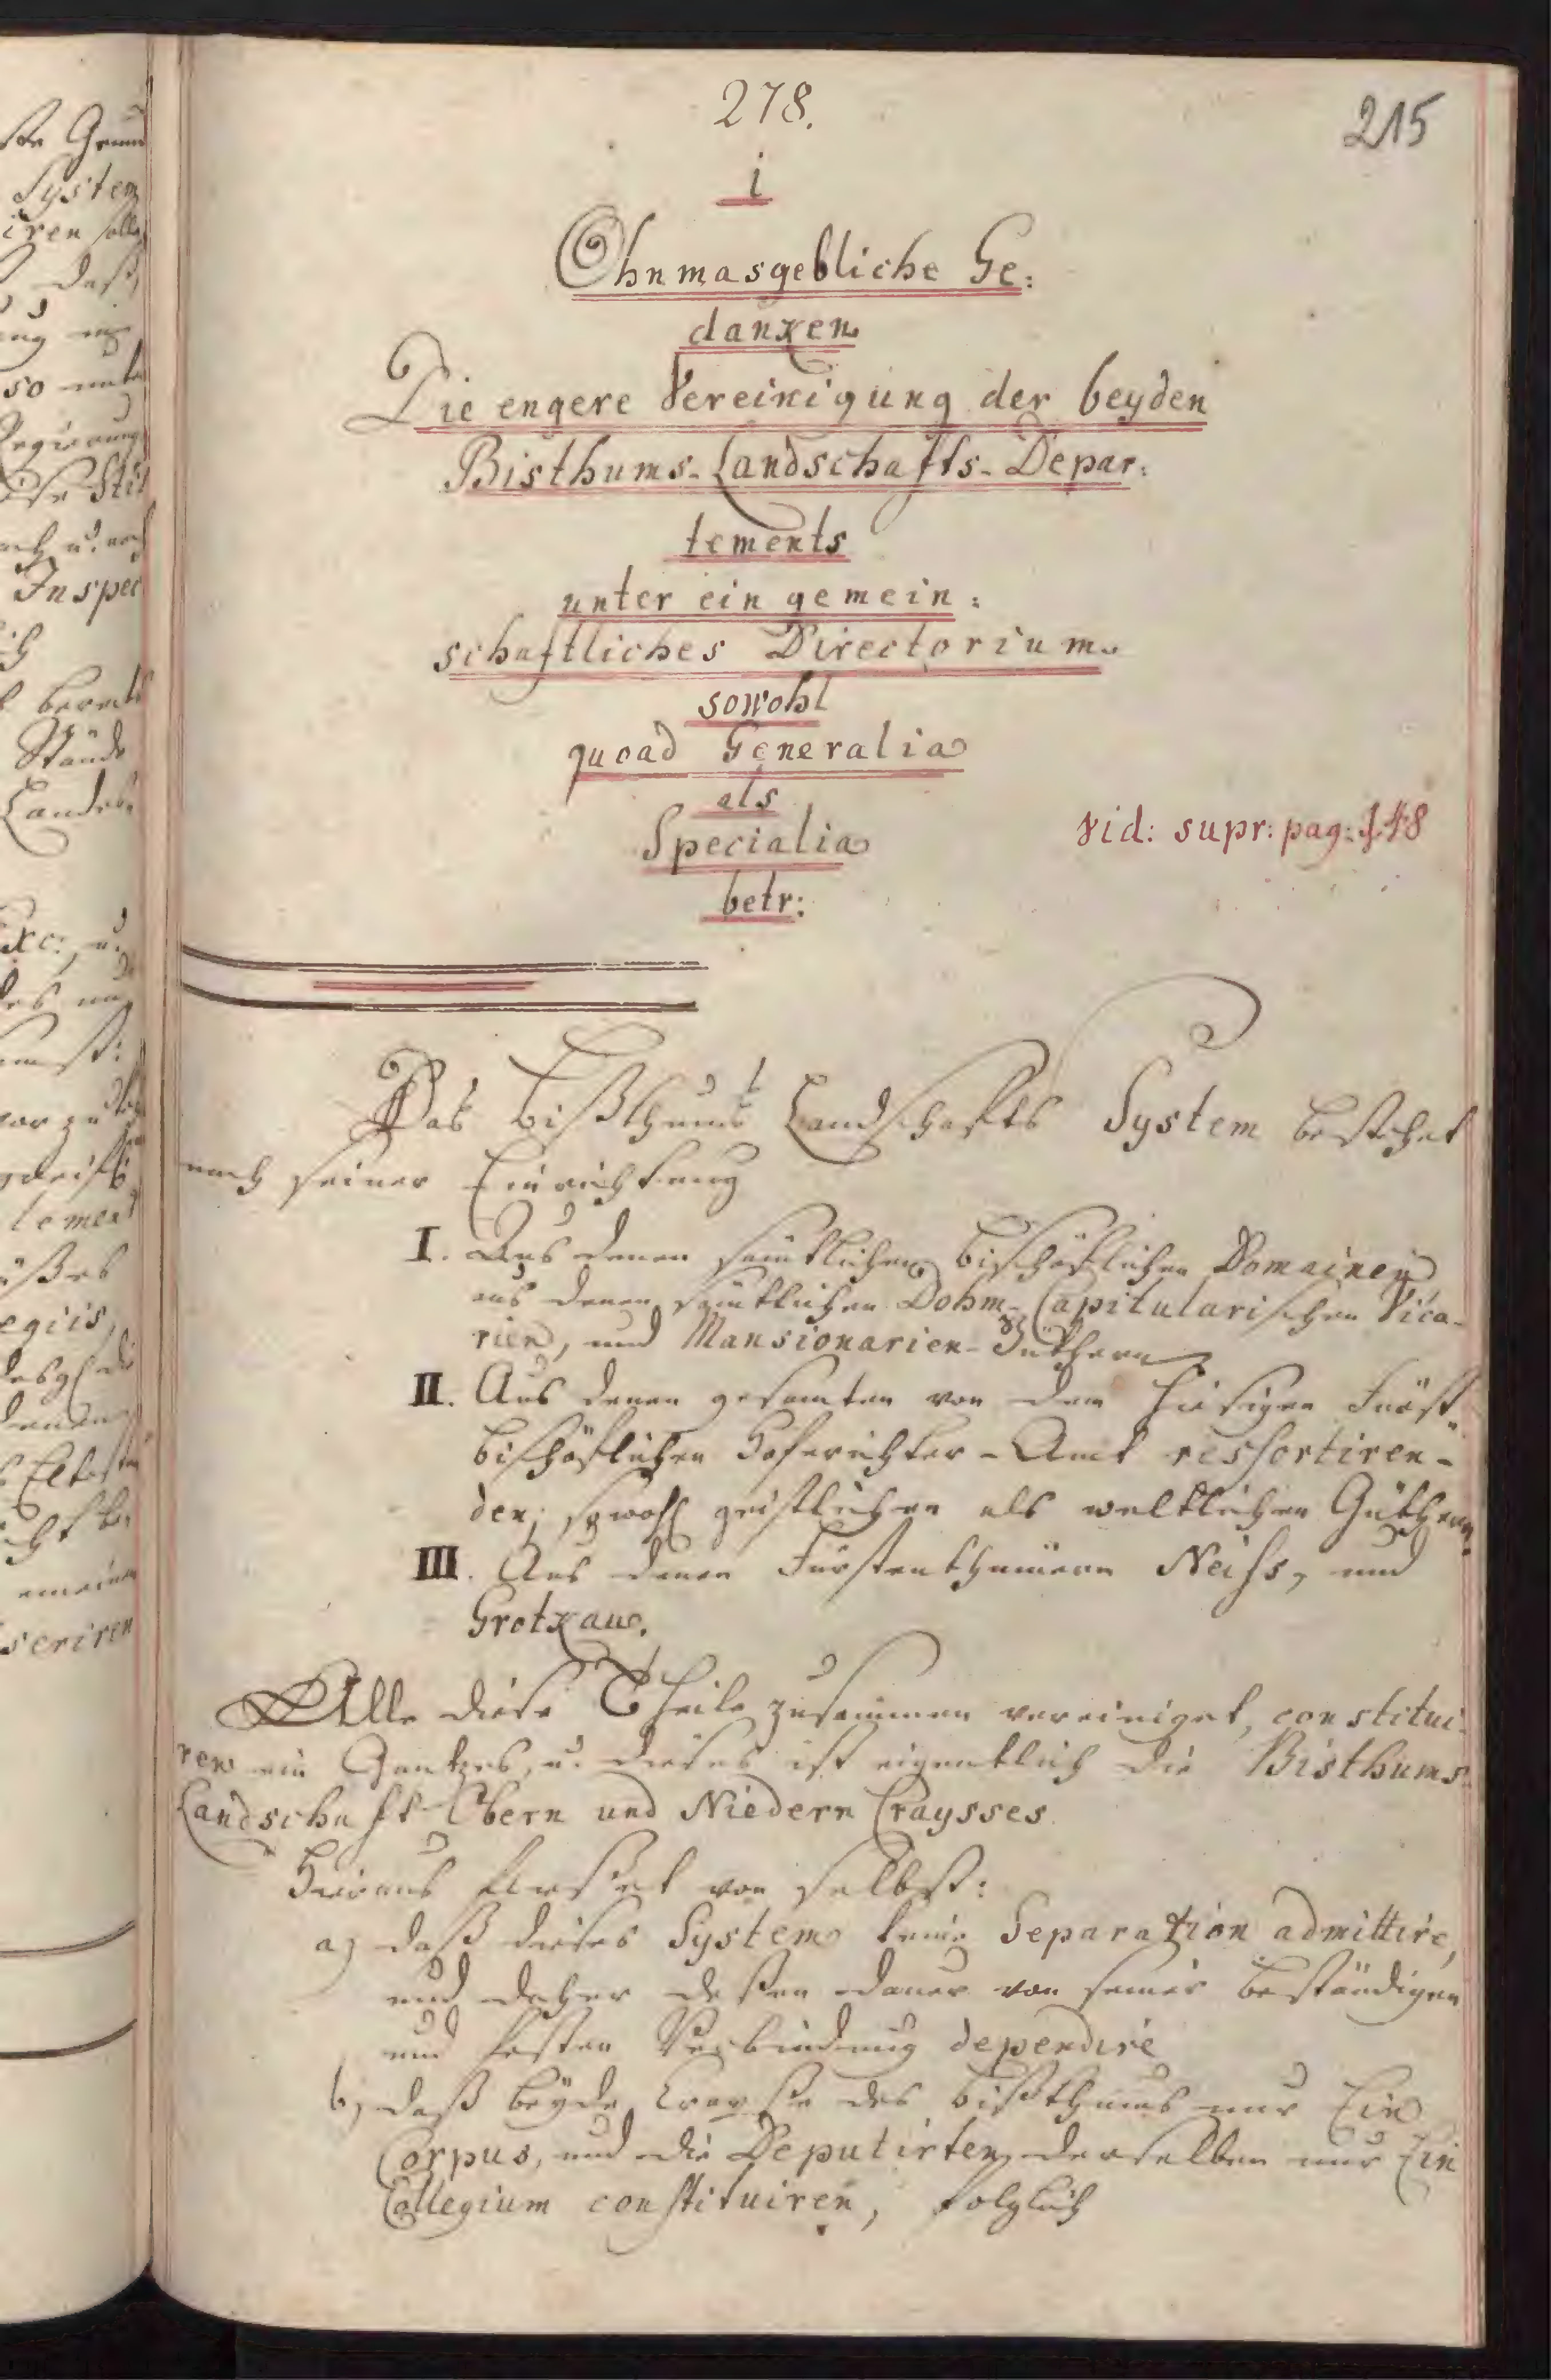 ste Grund
System
iren solle
daß
ung
so
Regierung
Stif
Inspec
bereits
Stände
Landes
Exc: u.
des
vor zu
lement
egiis,
desgl die
Eltesten
emeinen
seriren
278.
215
i
Ohnmasgebliche Ge:
danken
Die engere Vereinigung der beyden
Bisthums-Landschafts-Depar:
tements
unter ein gemein:
schaftliches Directorium
sowohl
quoad Generalia
als
Specialia
vid: supr: pag: 148
betr:
Das Bißthums Landschafts System bestehet
nach seiner Einrichtung
I. Aus denen sämtlichen Bischöflichen Domainen
aus denen sämtlichen Dohm-Capitularischen Vica-
rien, und Mansionarien-Güthern
II. Aus denen gesamten von dem hiesigen Fürst-
bischöflichen Hofrichter-Amt ressortiren-
den, sowohl geistlichen als weltlichen Güthern.
III. Aus denen Fürstenthümern Neiss, und
Grotkau.
Alle diese Theile zusammen vereiniget, constitui-
ren ein Gantzes, u. dieses ist eigentlich die Bisthums-
Landschaft Obern und Niedern Craysses
Hieraus fließet von selbst:
a) daß dieses System keine Separation admittire,
und daher deßen Dauer von seiner beständigen
und festen Verbindung dependire
b) daß beyde Crayße des Bißthums nur Ein
Corpus, und die Deputirten derselben nur Ein
Collegium constituiren, folglich